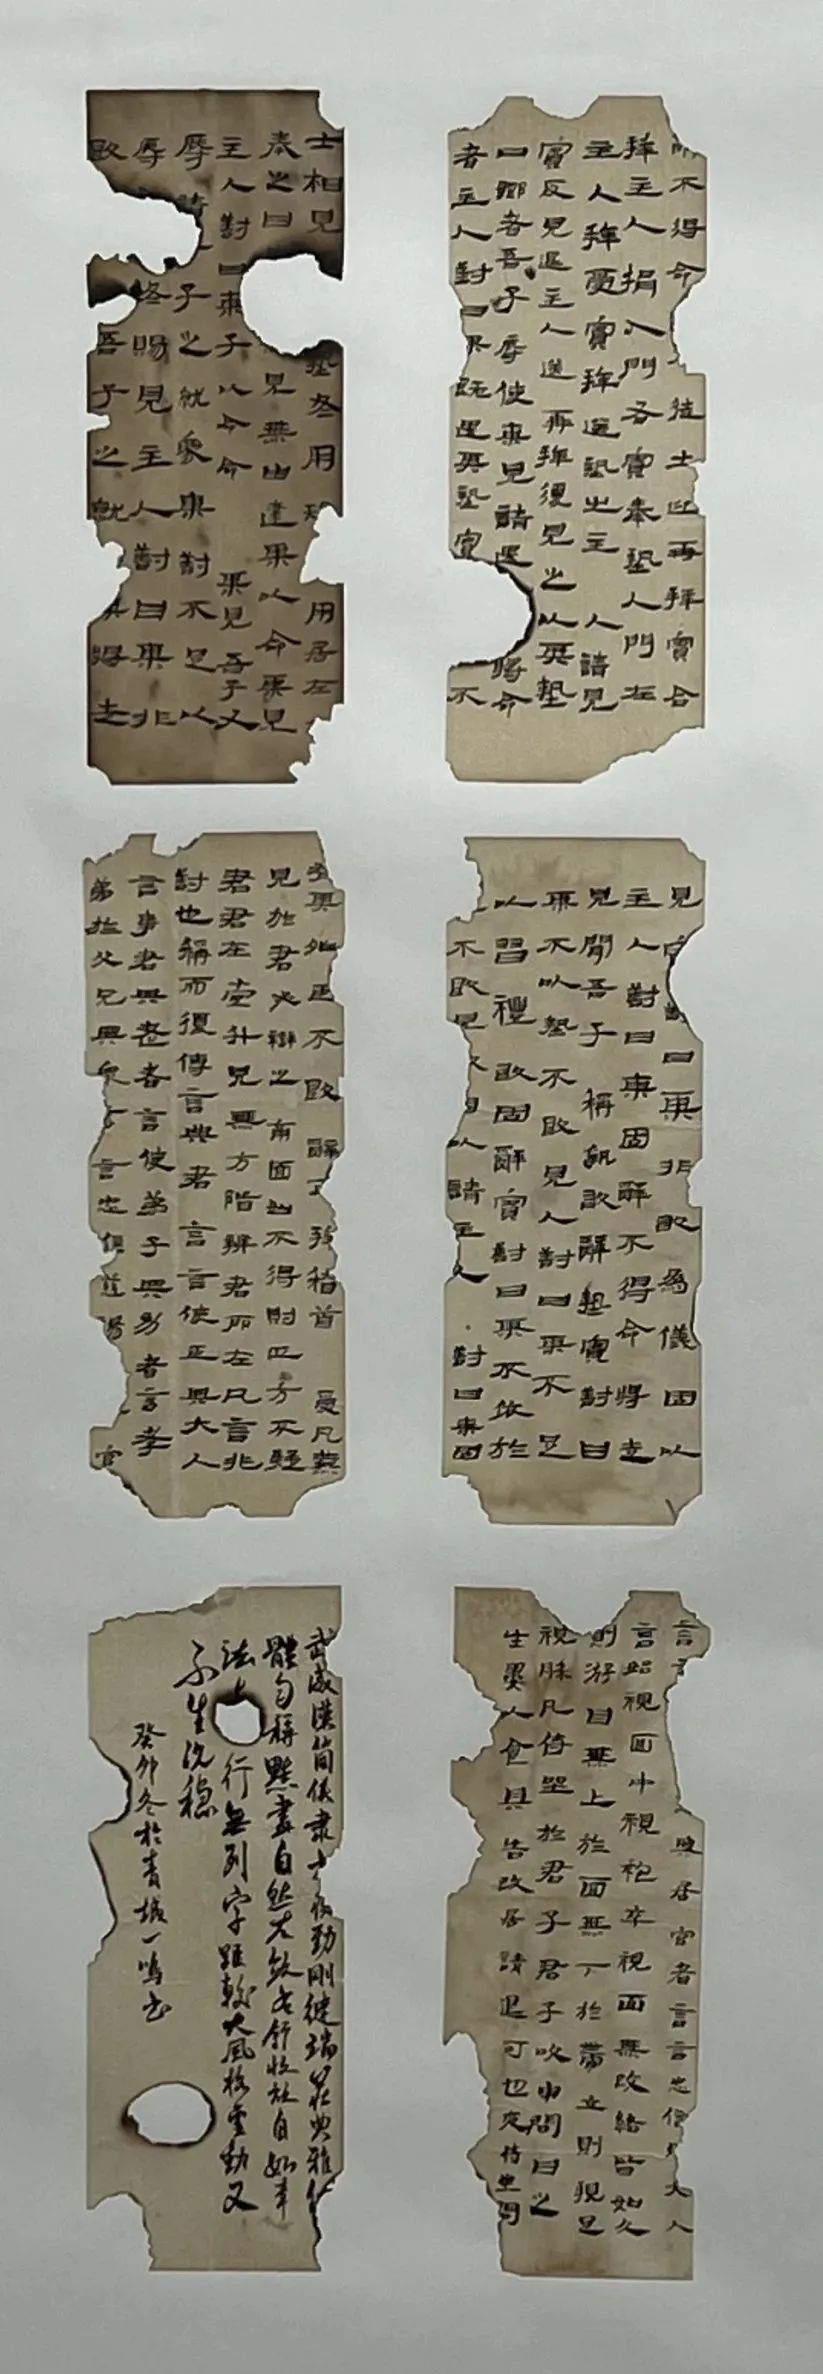 士相見 摯冬用 用居左
奉之曰 見無由達某以命某見
主人對曰某子以命命 某見吾子又
辱請 子之就家某對不足以
辱 終賜見主人對曰某非
敢 吾子之就 某將走
見 對曰某非敢為儀固以
主人對曰某固辭不得命將走
見聞吾子稱摯敢辭摯賓對曰
某不以摯不敢見人對曰某不足
以習禮敢固辭賓對曰某不依於
不敢見 以請主人對曰某固
不得命 從士 再拜賓合
拜主人揖入門右賓奉摯入門左
主人拜受賓拜送摯出主人請見
賓反見退主人送再拜復見之以其摯
曰鄉者吾子辱使某見請還 將命
者主人對曰某既還其摯賓 不
其 不敢辭 稽首 受凡燕
見於君必辯之南面 不得則正方不疑
君君在堂升見無方階辨君所在凡言非
對也稱而復傳言與君言言使臣與大人
言事君與老者言使弟子與幼者言孝
弟於父兄與眾 言忠信 官
與居官者言言忠信 大人
言始視面中視袍卒視面無改終皆如久
則游目無上於面無下於帶立則視足
視膝凡侍坐於君子君子吹申問日之
生 人食具告改居請退可也夜侍坐問
武威漢簡儀隸 勁剛健端莊典雅
體勻稱點畫自然左斂右舒收放自如章
法上 行無列字距較大風格 動又
不失沉穩
癸卯冬於青城一鳴書